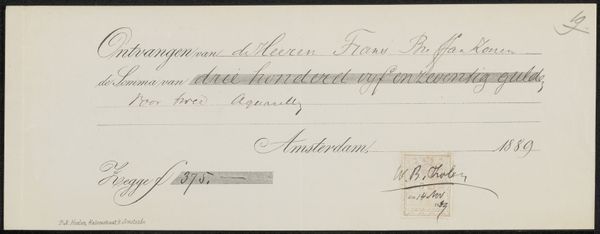 19
Ontvangen van de Heeren Frans Buffa en Zonen
de Somma van drie honderd vijf en zeventig gulden
voor twee Aquarellen
Amsterdam, 1889
Zegge f 375. —
W. B. Tholen
14 Nov
89